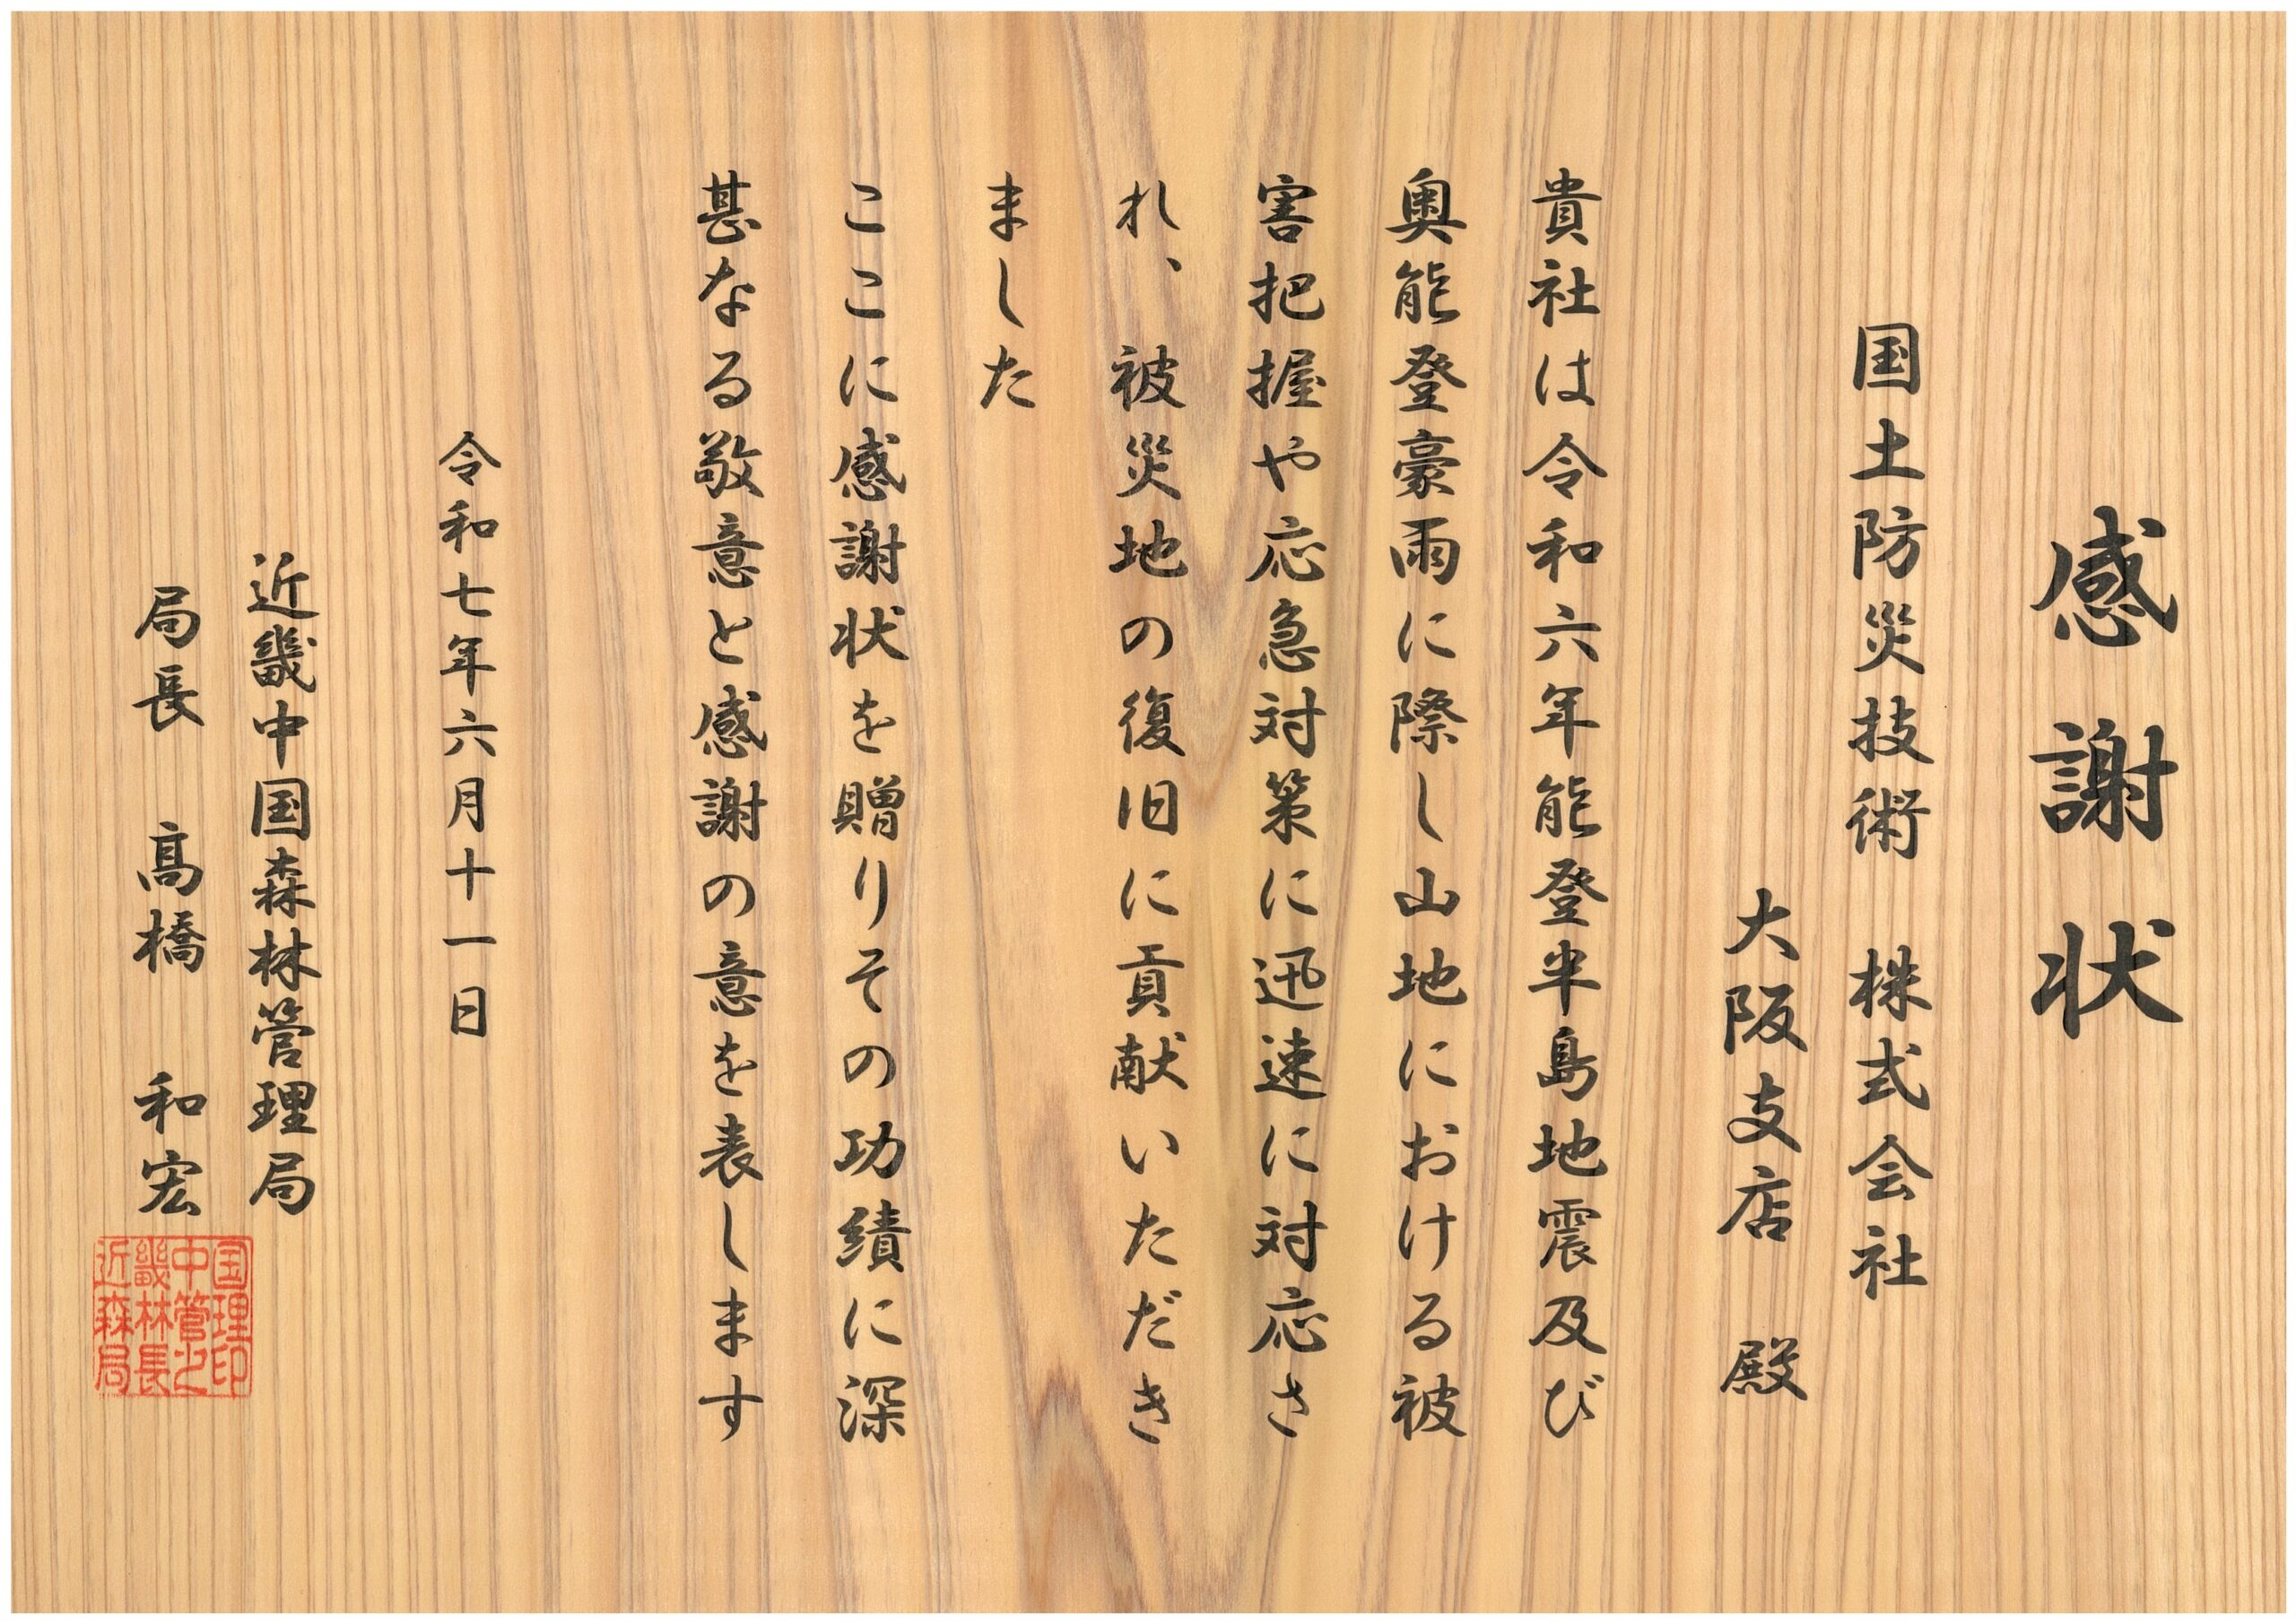 感謝状
国土防災技術 株式会社
大阪支店 殿
貴社は令和六年能登半島地震及び
奥能登豪雨に際し山地における被
害把握や応急対策に迅速に対応さ
れ、被災地の復旧に貢献いただき
ました
ここに感謝状を贈りその功績に深
甚なる敬意と感謝の意を表します
令和七年六月十一日
近畿中国森林管理局
局長 髙橋 和宏
近畿中国
森林管理
局長之印